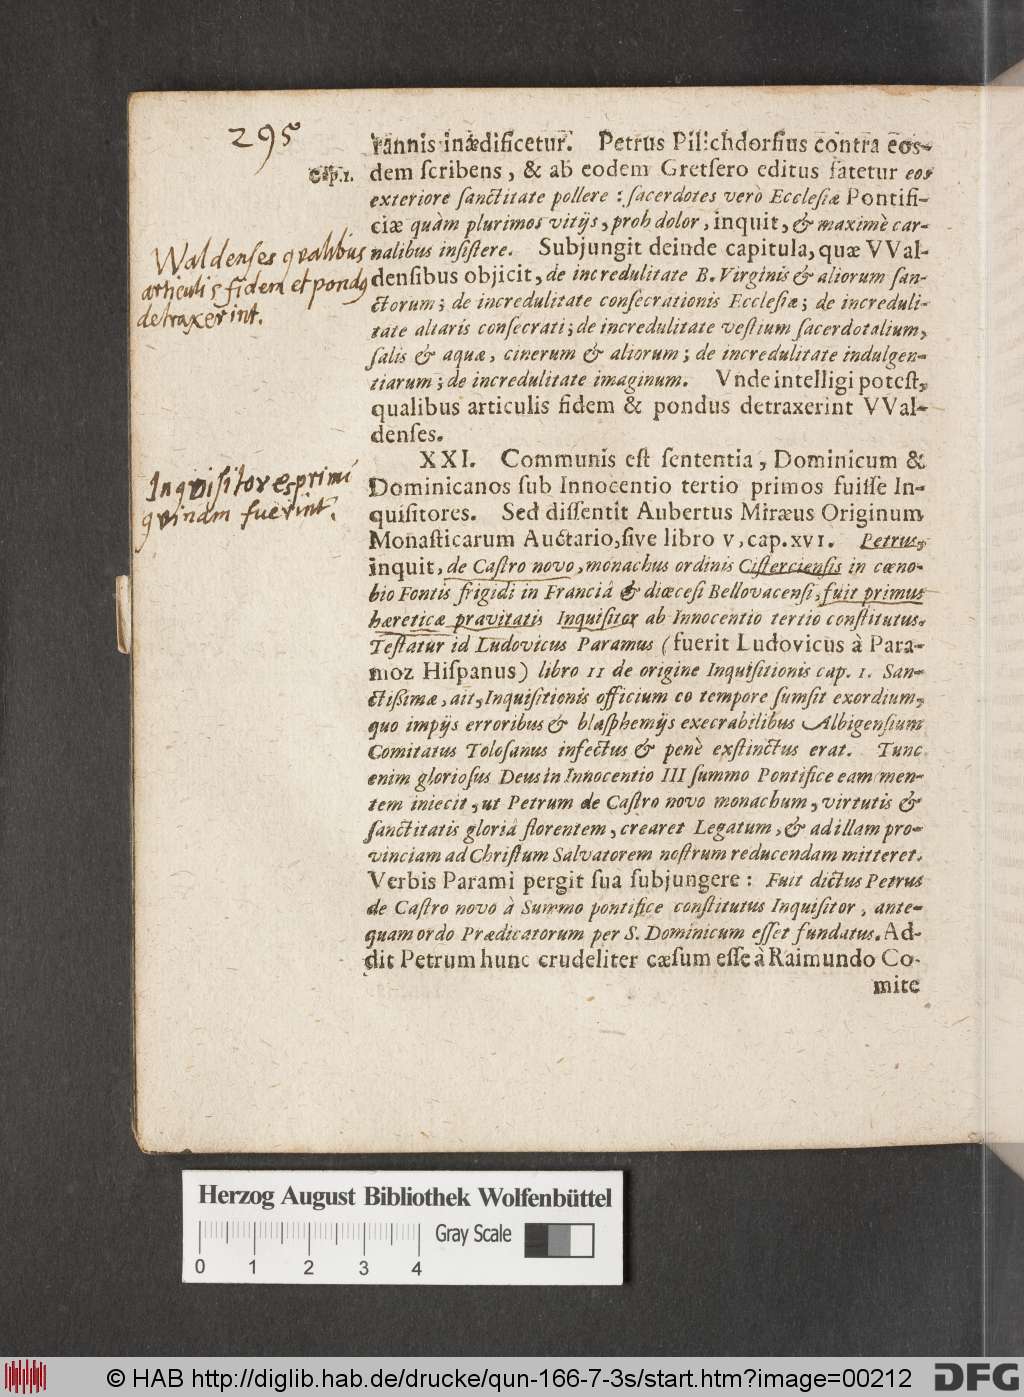 295
rannis inædificetur. Petrus Pilichdorfius contra eos-
Cap.1.
dem ſcribens, & ab eodem Gretſero editus fatetur eos
exteriore ſanctitate pollere: ſacerdotes verò Eccleſiæ Pontifi-
ciæ quàm plurimos vitijs, proh dolor, inquit, & maximè car-
nalibus inſiſtere. Subjungit deinde capitula, quæ VVal-
Waldenses qualibus
articulis fidem et pondus
detraxerint.
denſibus objicit, de incredulitate B. Virginis & aliorum ſan-
ctorum; de incredulitate conſecrationis Eccleſiæ; de increduli-
tate altaris conſecrati; de incredulitate veſtium ſacerdotalium,
ſalis & aquæ, cinerum & aliorum; de incredulitate indulgen-
tiarum; de incredulitate imaginum. Vnde intelligi poteſt,
qualibus articulis fidem & pondus detraxerint VVal-
denſes.
XXI. Communis eſt ſententia, Dominicum &
Inquisitores primi
quinam fuerint.
Dominicanos ſub Innocentio tertio primos fuiſſe In-
quiſitores. Sed diſſentit Aubertus Miræus Originum
Monaſticarum Auctario, ſive libro V, cap. XVI. Petrus,
inquit, de Caſtro novo, monachus ordinis Ciſtercienſis in cœno-
bio Fontis frigidi in Franciâ & diœceſi Bellovacenſi, fuit primus
hæreticæ pravitatis Inquiſitor ab Innocentio tertio conſtitutus.
Teſtatur id Ludovicus Paramus (fuerit Ludovicus à Para-
moz Hiſpanus) libro 11 de origine Inquiſitionis cap. 1. San-
ctißimæ, ait, Inquiſitionis officium eo tempore ſumſit exordium,
quo impijs erroribus & blaſphemijs execrabilibus Albigenſium
Comitatus Toloſanus infectus & penè exſtinctus erat. Tunc
enim glorioſus Deus in Innocentio III ſummo Pontifice eam men-
tem iniecit, ut Petrum de Caſtro novo monachum, virtutis &
ſanctitatis gloriâ florentem, crearet Legatum, & ad illam pro-
vinciam ad Chriſtum Salvatorem noſtrum reducendam mitteret.
Verbis Parami pergit ſua ſubjungere: Fuit dictus Petrus
de Caſtro novo à Summo pontifice conſtitutus Inquiſitor, ante-
quam ordo Prædicatorum per S. Dominicum eſſet fundatus. Ad-
dit Petrum hunc crudeliter cæſum eſſe à Raimundo Co-
mite
Herzog August Bibliothek Wolfenbüttel
Gray Scale
0 1 2 3 4
© HAB http://diglib.hab.de/drucke/qun-166-7-3s/start.htm?image=00212
DFG